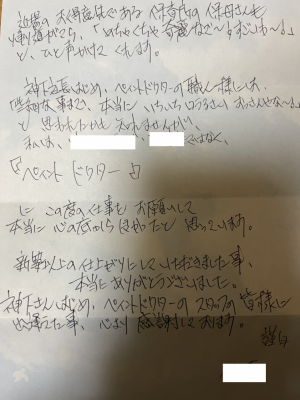 近場のお得意様である保育園の保母さんも
通りがてら、「めちゃくちゃ奇麗ねぇ〜すごいわ〜」
と、ひと声かけてくれます。
神下店長はじめ、ペイントドクターの職人様には、
な事まで、本当にいちいちうるさいおっさんやな〜」
と思われたかも知れませんが、
私は、・ではなく、
『ペイントドクター』
にこの度の仕事をお願いして
本当に心の底から良かったと思っています。
新築以上の仕上がりにしていただきました事、
本当にありがとうございました。
神下さんはじめ、ペイントドクターのスタッフの皆様に
出逢えた事、心より感謝しております。
謹白